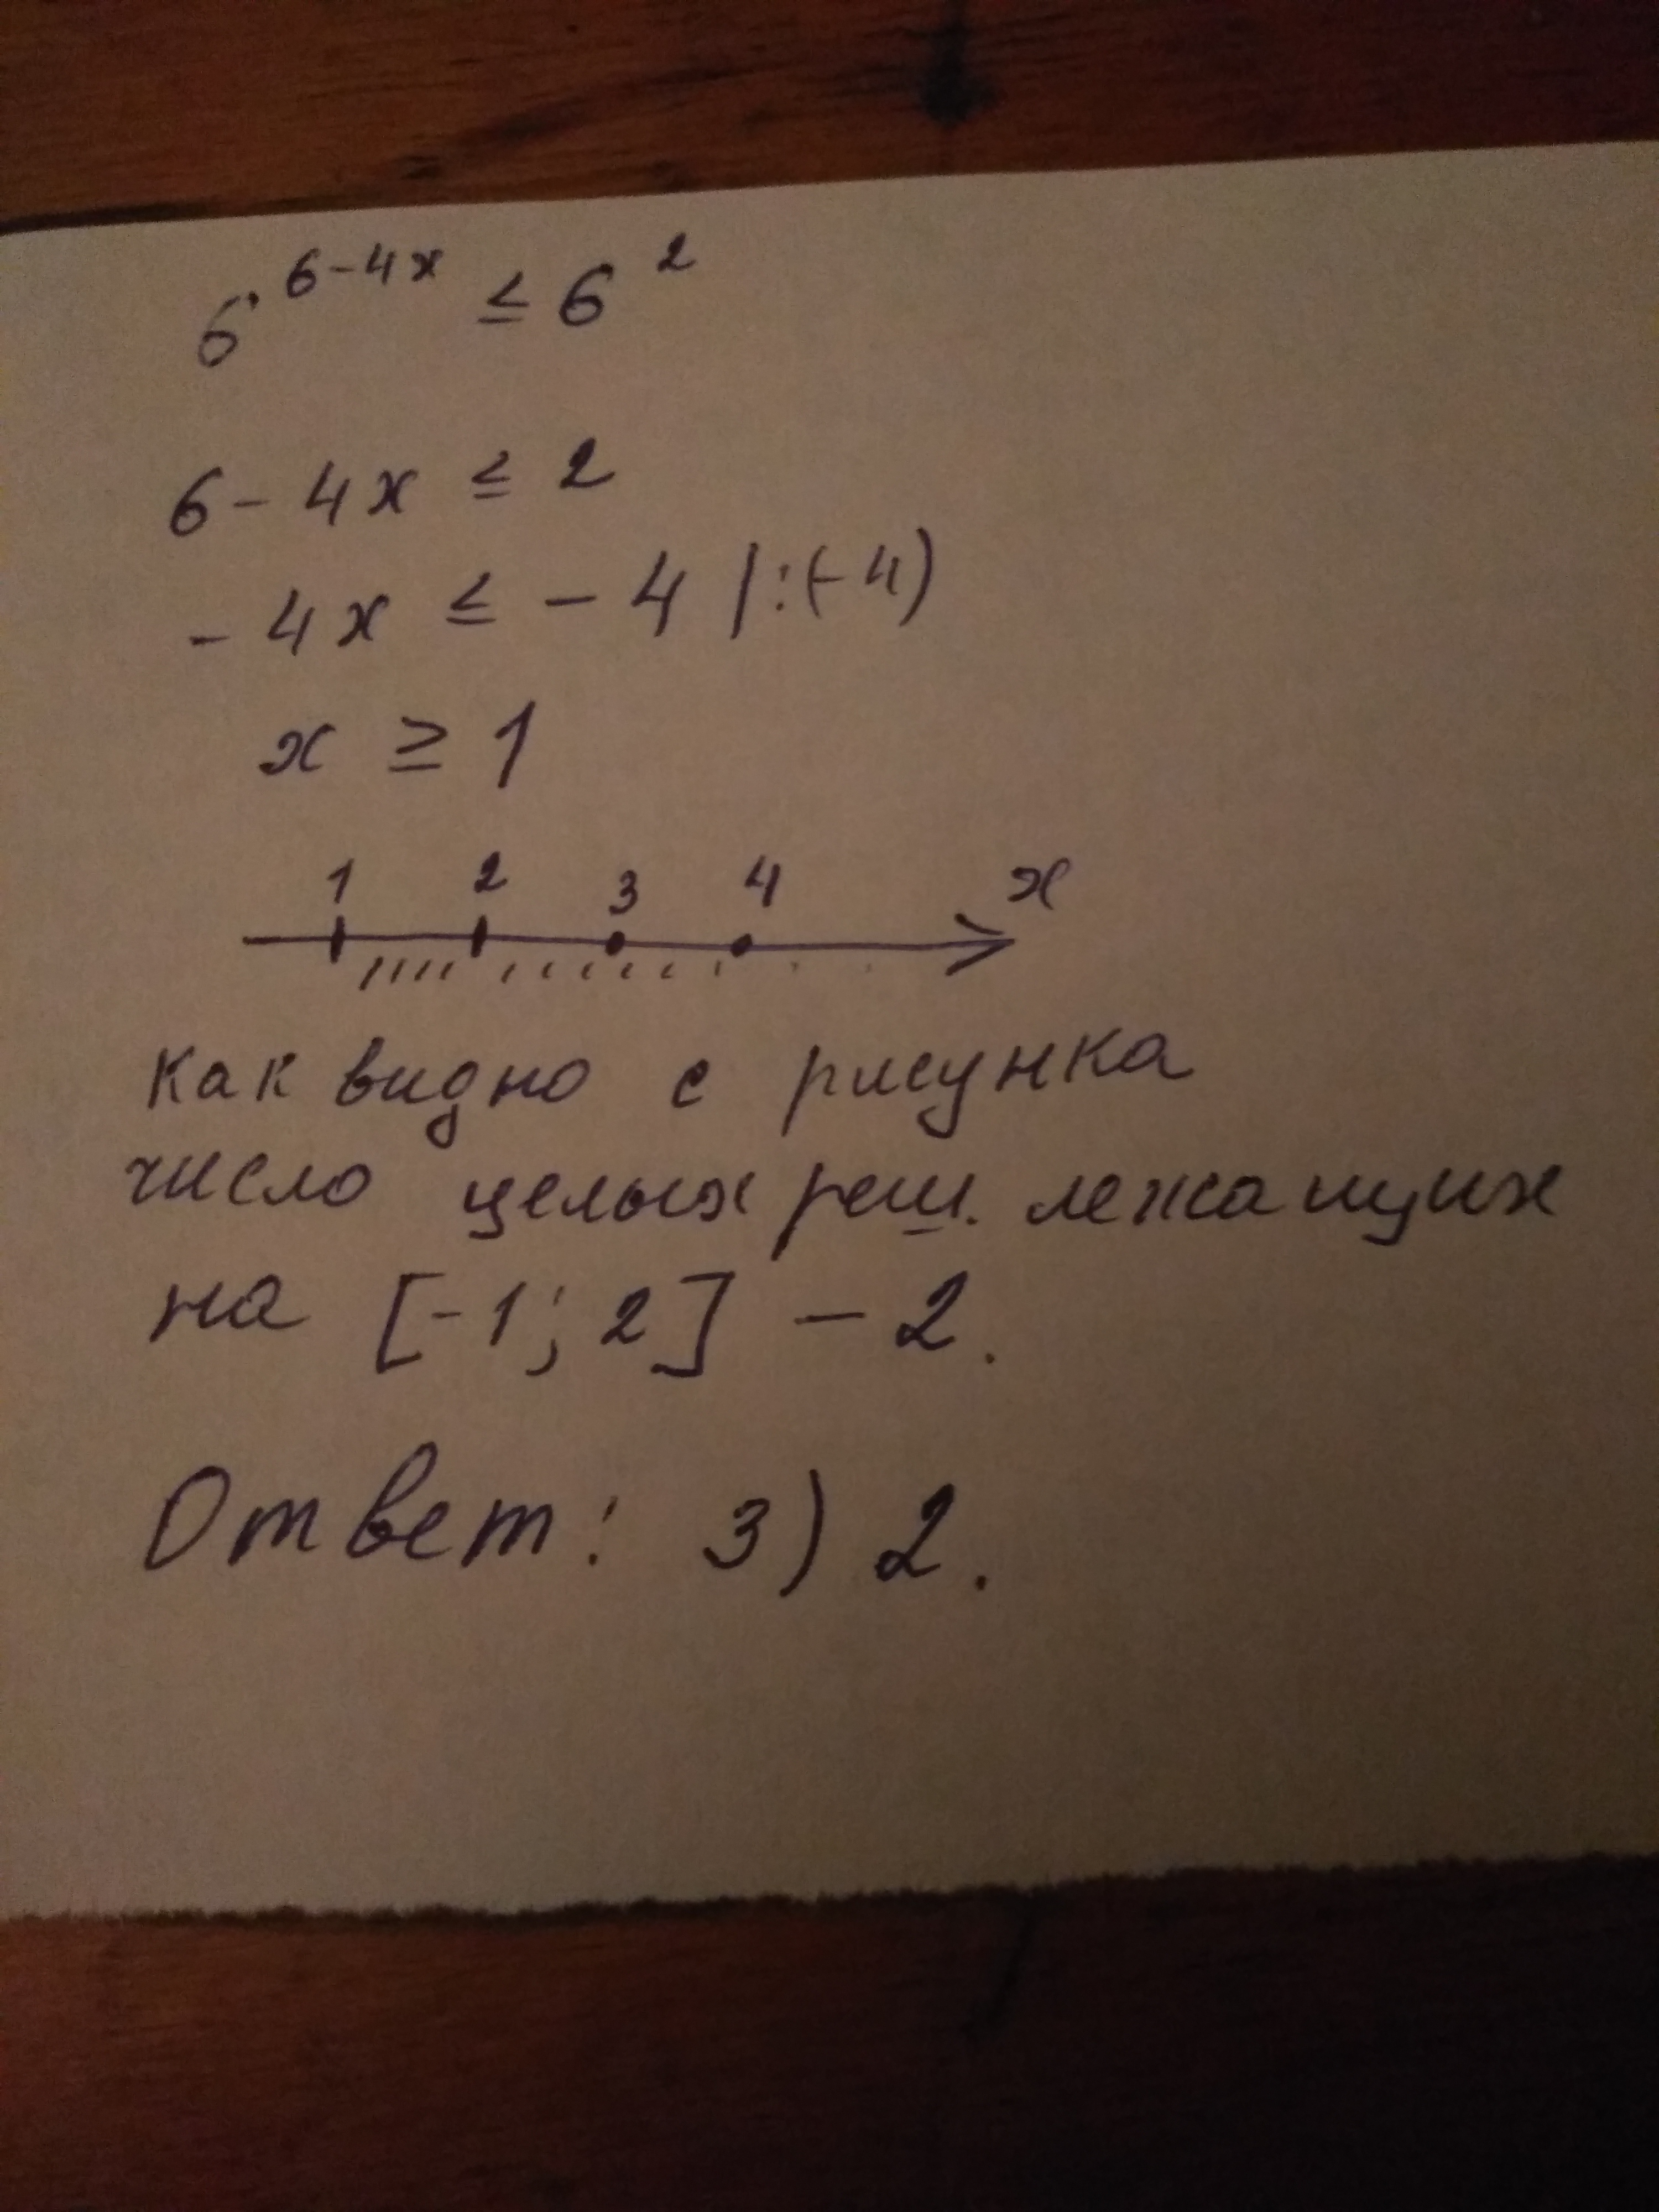 6^(6-4x) ≤ 6^2
6 - 4x ≤ 2
- 4x ≤ - 4 | :(-4)
x ≥ 1
1 2 3 4 x
Как видно с рисунка
число целых реш. лежащих
на [-1; 2] - 2.
Ответ: 3) 2.